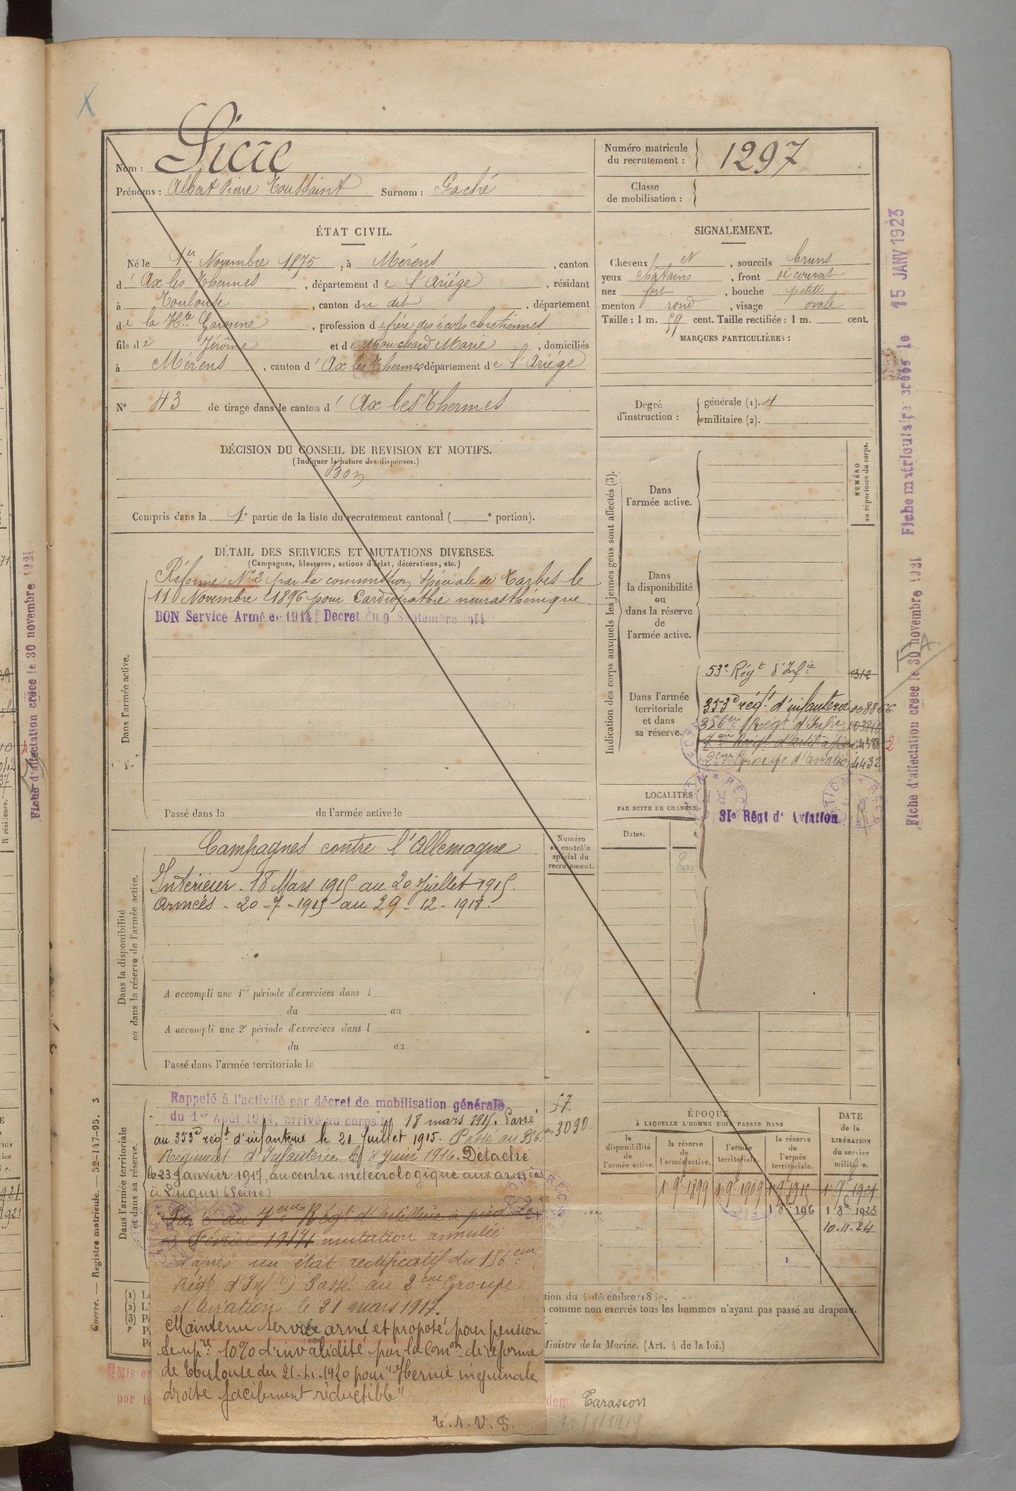 Nom : Sicre
Prénoms : Albert Pierre Toussaint Surnom : Gaché
Numéro matricule du recrutement : 1297
Classe de mobilisation :
ÉTAT CIVIL.
Né le 1er Novembre 1875, à Mérens, canton
d' Ax les Thermes, département de l'Ariége, résidant
à Toulouse, canton du dit, département
de la Hte Garonne, profession de frère des écoles chrétiennes
fils de Jérôme et de Marie, domiciliés
à Mérens, canton d' Ax les Thermes département de l'Ariége
N° 43 de tirage dans le canton d' Ax les Thermes
SIGNALEMENT.
Cheveux N, sourcils bruns
yeux chatains, front découvert
nez fort, bouche petite
menton rond, visage ovale
Taille : 1 m. 59 cent. Taille rectifiée : 1 m. cent.
MARQUES PARTICULIÈRES :
Degré d'instruction : générale (1). militaire (2).
DÉCISION DU CONSEIL DE REVISION ET MOTIFS.
(Indiquer la nature des dispenses.)
Bon
Compris dans la 1e partie de la liste du recrutement cantonal ( e portion).
DÉTAIL DES SERVICES ET MUTATIONS DIVERSES.
(Campagnes, blessures, actions d'éclat, décorations, etc.)
Réformé N°2 par la commission spéciale de Tarbes le
11 Novembre 1896 pour Cardiopathie neurasthénique
BON Service Armée 1914 Décret du 9 Septembre 1914
Dans l'armée active.
Passé dans la de l'armée active le
Indication des corps auxquels les jeunes gens sont affectés (3).
NUMÉRO au répertoire du corps.
Dans l'armée active.
Dans la disponibilité ou dans la réserve de l'armée active.
Dans l'armée territoriale et dans sa réserve.
53e Régt d'Infie 1312
353e régt d'infanterie
356eme Régt d'Infie
7eme Régt d'artie à pied
2eme Groupe d'aviation 4432
31e Régt d'Aviation
LOCALITÉS
PAR SUITE DE CHANGE
Dates.
Numéro au contrôle spécial du recrutement.
Dans la disponibilité ou dans la réserve de l'armée active.
Campagnes contre l'Allemagne
Intérieur - 18 Mars 1915 au 20 Juillet 1915
Armées - 20-7-1915 au 29-12-1918.
A accompli une 1re période d'exercices dans l
du au
A accompli une 2e période d'exercices dans l
du au
Passé dans l'armée territoriale le
Dans l'armée territoriale et dans sa réserve.
Rappelé à l'activité par décret de mobilisation générale
du 1er Août 1914, arrivé au corps le 18 mars 1915. Passé
au 353e régt d'infanterie le 21 Juillet 1915. Passé au 356e
Régiment d'Infanterie le 8 Juin 1916. Détaché
le 23 Janvier 1917 au centre météorologique aux armées
à Dugny (Seine)
Passé au 7eme Régt d'artillerie à pied le
Février 1917 mutation annulée
d'après un état rectificatif du 156eme
Régt d'Infie) Passé au 2eme Groupe
d'aviation le 21 mars 1917.
Maintenu service armé et proposé pour pension
temp. 10% d'invalidité par la Comon de réforme
de Toulouse du 21-4-1920 pour "Hernie inguinale
droite facilement réductible"
T.A.V.S.
3030.
ÉPOQUE
À LAQUELLE L'HOMME DOIT PASSER DANS
la disponibilité de l'armée active.
la réserve de l'armée active.
l'armée territoriale.
la réserve de l'armée territoriale.
DATE de la LIBÉRATION du service militaire.
1 9bre 1899
1 9bre 1909
10.11.24
comme non exercés tous les hommes n'ayant pas passé au drapeau.
Ministre de la Marine. (Art. 4 de la loi.)
Tarascon
Guerre. — Registre matricule. — 52-147-95. 3
Fiche matriculaire créée le 15 JANV 1923
Fiche d'affectation créée le 30 novembre 1921
Fiche d'affectation créée le 30 novembre 1921